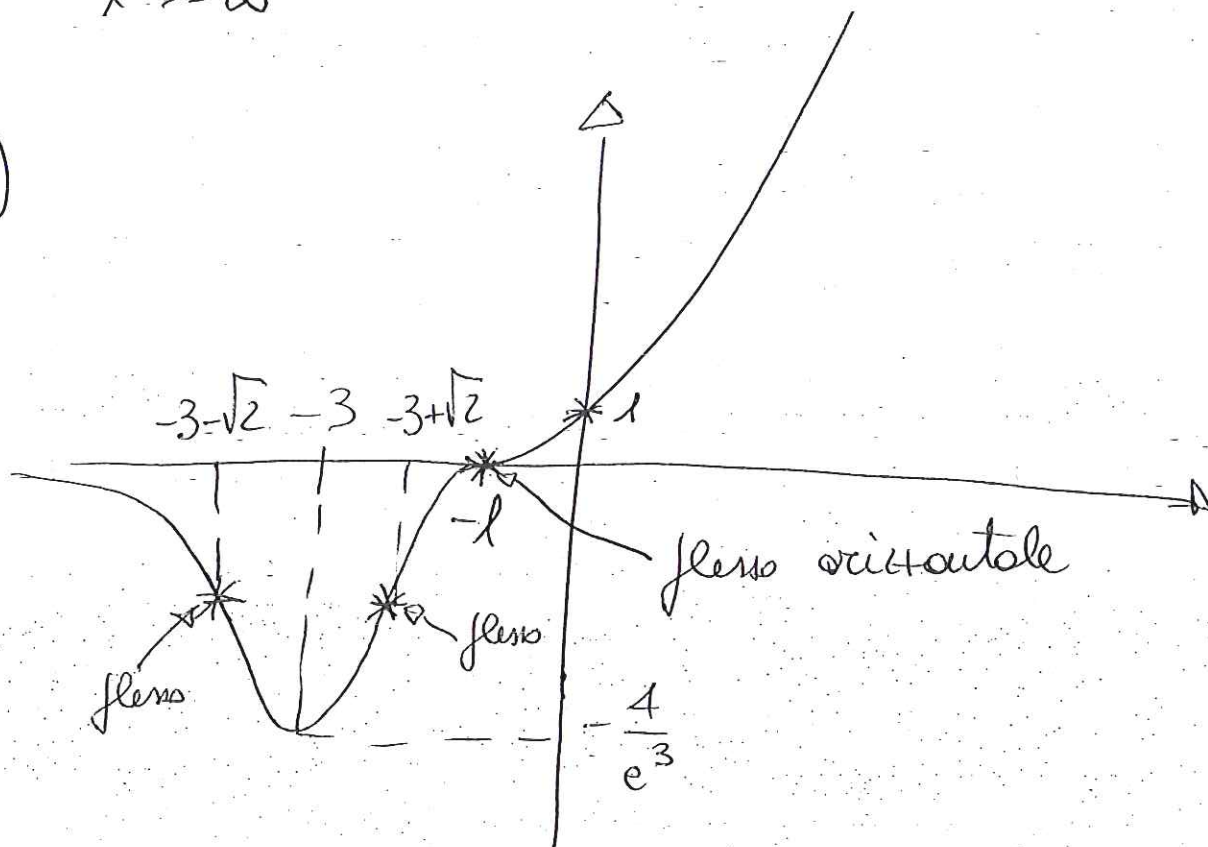 x → -∞
)
-3-√2 -3 -3+√2
1
-1
flesso orizzontale
flesso
flesso
- 4/e³